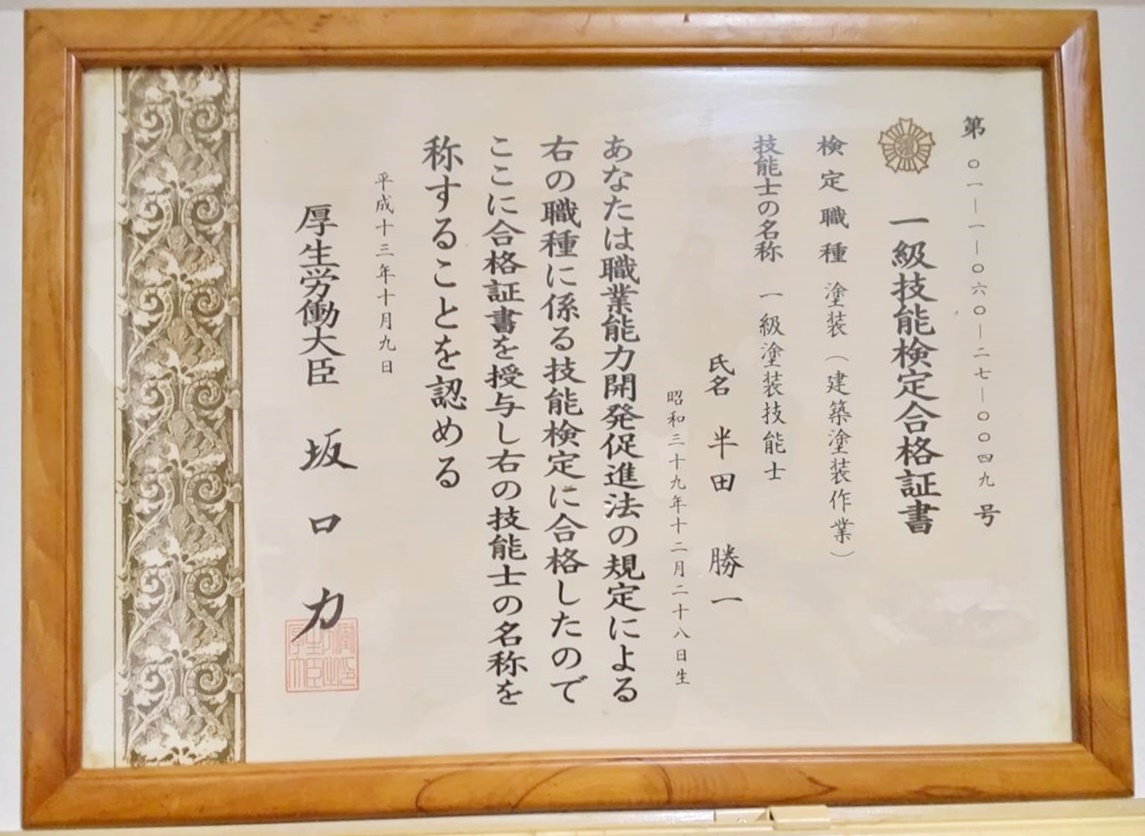 第〇一一―一―〇六〇―二七―〇〇四九号
一級技能検定合格証書
検定職種 塗装(建築塗装作業)
技能士の名称 一級塗装技能士
氏名 半田 勝一
昭和三十九年十二月二十八日生
あなたは職業能力開発促進法の規定による
右の職種に係る技能検定に合格したので
ここに合格証書を授与し右の技能士の名称を
称することを認める
平成十三年十月九日
厚生労働大臣 坂口力